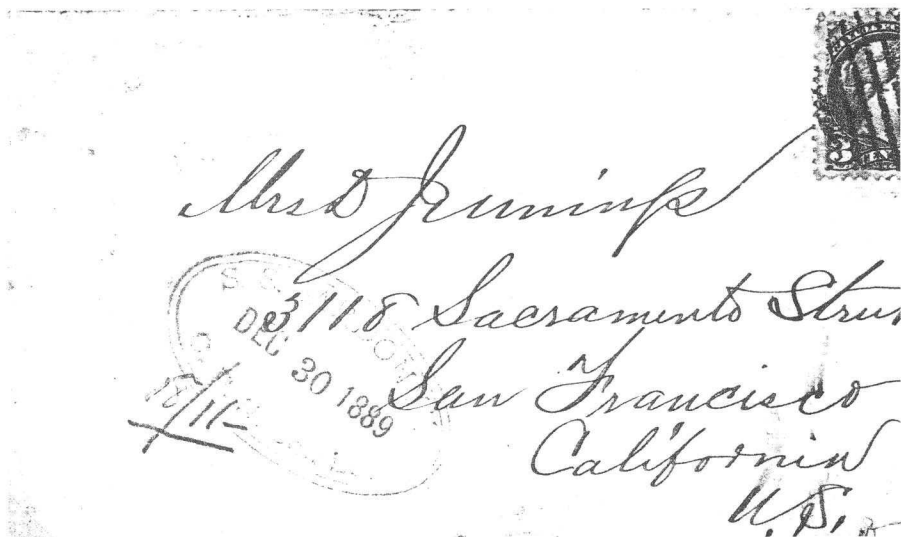 Mrs D Jennings
3118 Sacramento Stree
San Francisco
California
U.S.
S.S.
DEC 30 1889
3